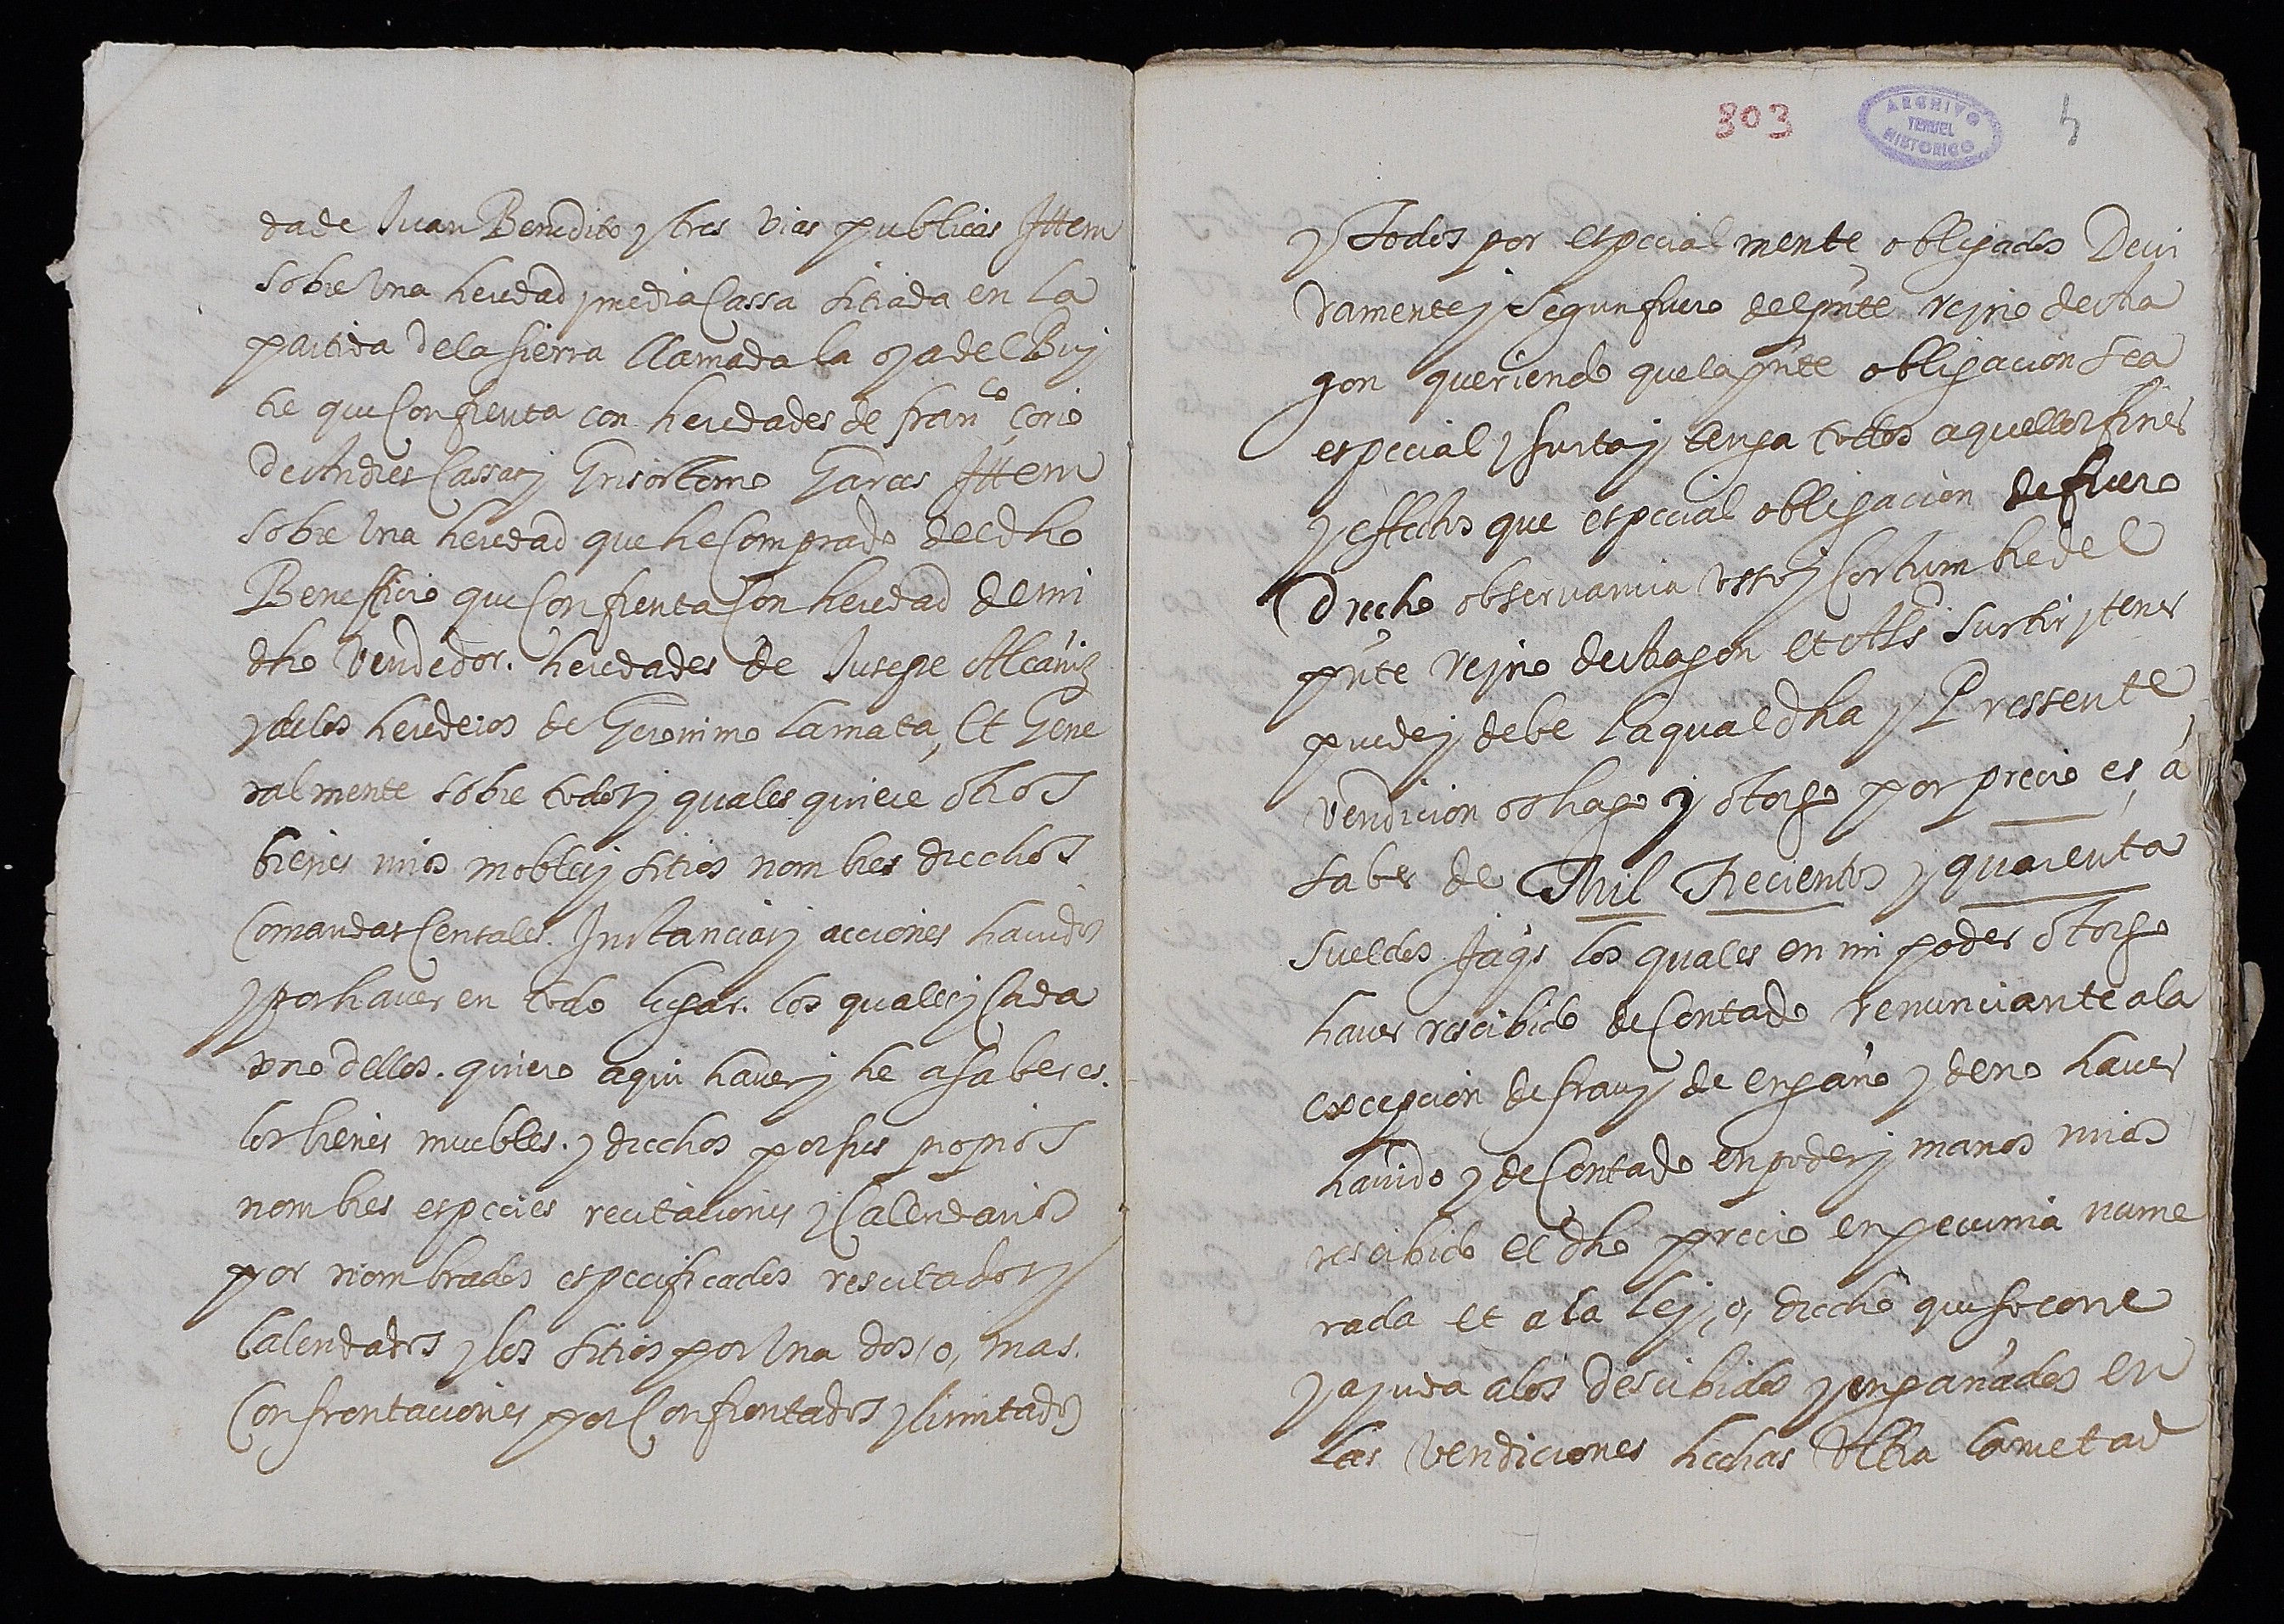 da de Juan Benedito y tres vias publicas Ittem
sobre una heredad y media Cassa sitiada en la
partida de la sierra llamada la oya del Buy
tre que Confrenta con heredades de franco
de Andres Cassas y Grisostomo Garces Ittem
sobre una heredad que he Comprado del dho
Benefficio que Confrenta Con heredad de mi
dho Vendedor. heredades de Jusepe Alcañiz
y de los herederos de Geronimo Lamata, Et Gene
ralmente sobre todos y quales quiere otros
bienes mios mobles y sitios nombres drechos
Comandas Censales. Instancias y acciones havidos
y por haver en todo lugar. los quales y Cada
uno dellos. quiero aqui haver y he a saber es.
los bienes muebles. y drechos por sus propios
nombres especies recitaciones y Calendarios
por nombrados especificados rescitados y
Calendados y los sitios por una dos, o, mas.
Confrontaciones por Confrontados y limitados
803
ARCHIVO
TERUEL
HISTORICO
y todos por especialmente obligados Devi
damente y segun fuero del pnte reyno de Ara
gon queriendo que la pnte obligacion sea
especial y surta y tenga todos aquellos fines
y effectos que especial obligacion de fuero
Drecho observancia usso y Costumbre del
pnte reyno de Aragon et Als surtir y tener
puede y debe la qual dha y Pressente
Vendicion os hago y otorgo por precio es, a
saber de Mil Trecientos y quarenta
sueldos Jaqs los quales en mi poder otorgo
haver rescibido de Contado renunciante a la
excepcion de frau y de engaño y de no haver
havido y de Contado en poder y manos mias
rescibido el dho precio en pecunia nume
rada et a la ley, o, drecho que socorre
y ayuda a los descibidos y engañados en
las vendiciones hechas Ultra la metad